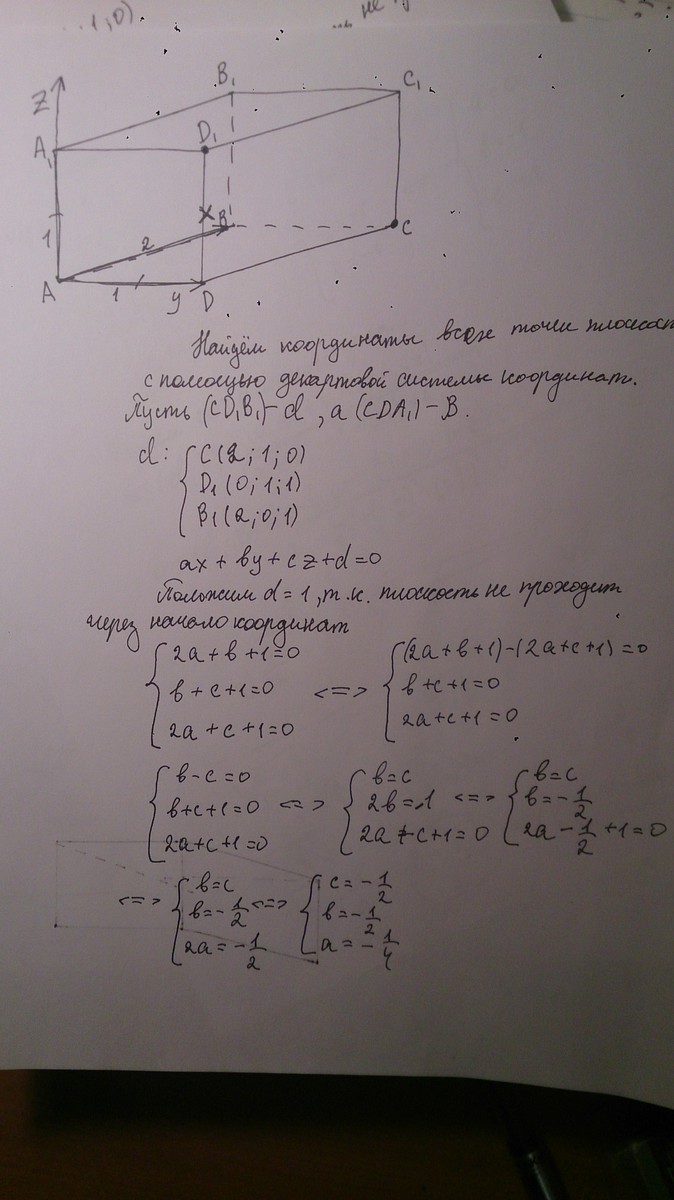 ..1,0).
... не
Z
B₁
C₁
A₁
D₁
1
2
B
C
A
1
y
D
Найдём координаты всех точки плоскост
с помощью декартовой системы координат.
Пусть (CD₁B₁)-d, а (CDA₁)-B.
d: { C(2; 1; 0)
D₁(0; 1; 1)
B₁(2; 0; 1)
ax + by + cz + d = 0
Положим d = 1, т.к. плоскость не проходит
через начало координат
{ 2a + b + 1 = 0 { (2a + b + 1) - (2a + c + 1) = 0
b + c + 1 = 0 <=> b + c + 1 = 0
2a + c + 1 = 0 2a + c + 1 = 0
{ b - c = 0 { b = c { b = c
b + c + 1 = 0 <=> 2b = -1 <=> b = -1/2
2a + c + 1 = 0 2a + c + 1 = 0 2a - 1/2 + 1 = 0
{ b = c { c = -1/2
<=> b = -1/2 <=> b = -1/2
2a = -1/2 a = -1/4